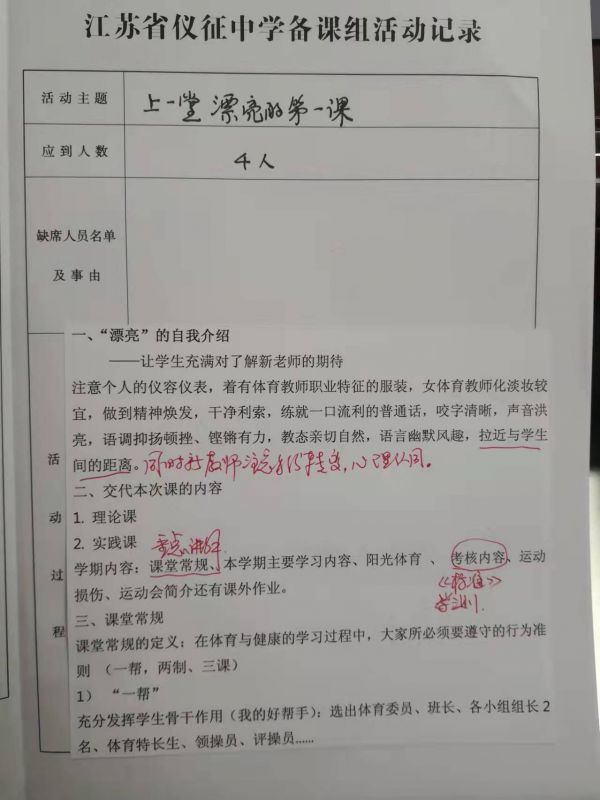 江苏省仪征中学备课组活动记录
活动主题 上一堂漂亮的第一课
应到人数 4人
缺席人员名单
及事由
活动过程
一、“漂亮”的自我介绍
——让学生充满对了解新老师的期待
注意个人的仪容仪表，着有体育教师职业特征的服装，女体育教师化淡妆较
宜，做到精神焕发，干净利索，练就一口流利的普通话，咬字清晰，声音洪
亮，语调抑扬顿挫、铿锵有力，教态亲切自然，语言幽默风趣，拉近与学生
间的距离。同时新教师注意身份转变，心理认同。
二、交代本次课的内容
1. 理论课
2. 实践课
重点讲解
学期内容：课堂常规、本学期主要学习内容、阳光体育 、考核内容、运动
《标准》
损伤、运动会简介还有课外作业。
三、课堂常规
课堂常规的定义：在体育与健康的学习过程中，大家所必须要遵守的行为准
则 （一帮，两制、三课）
1） “一帮”
充分发挥学生骨干作用（我的好帮手）：选出体育委员、班长、各小组组长 2
名、体育特长生、领操员、评操员......